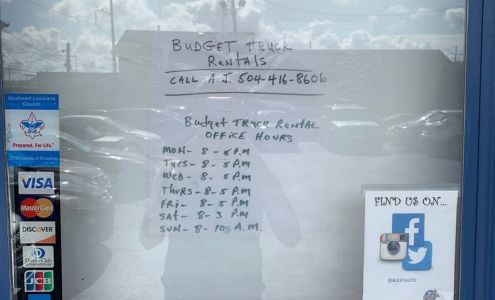 BUDGET TRUCK
RENTALS
CALL A.J. 504-416-8606
Budget TRUCK RENTAL
OFFICE HOURS
MON- 8- 5 P.M
TUES- 8- 5 P.M
WED- 8- 5 P.M
THURS- 8-5 P.M
FRI- 8- 5 P.M
SAT- 8- 3 P.M
SUN- 8-10 A.M.
Southeast Louisiana
Council
Prepared. For Life.™
VISA
MasterCard
DISCOVER
Diners Club
INTERNATIONAL
JCB
FIND US ON...